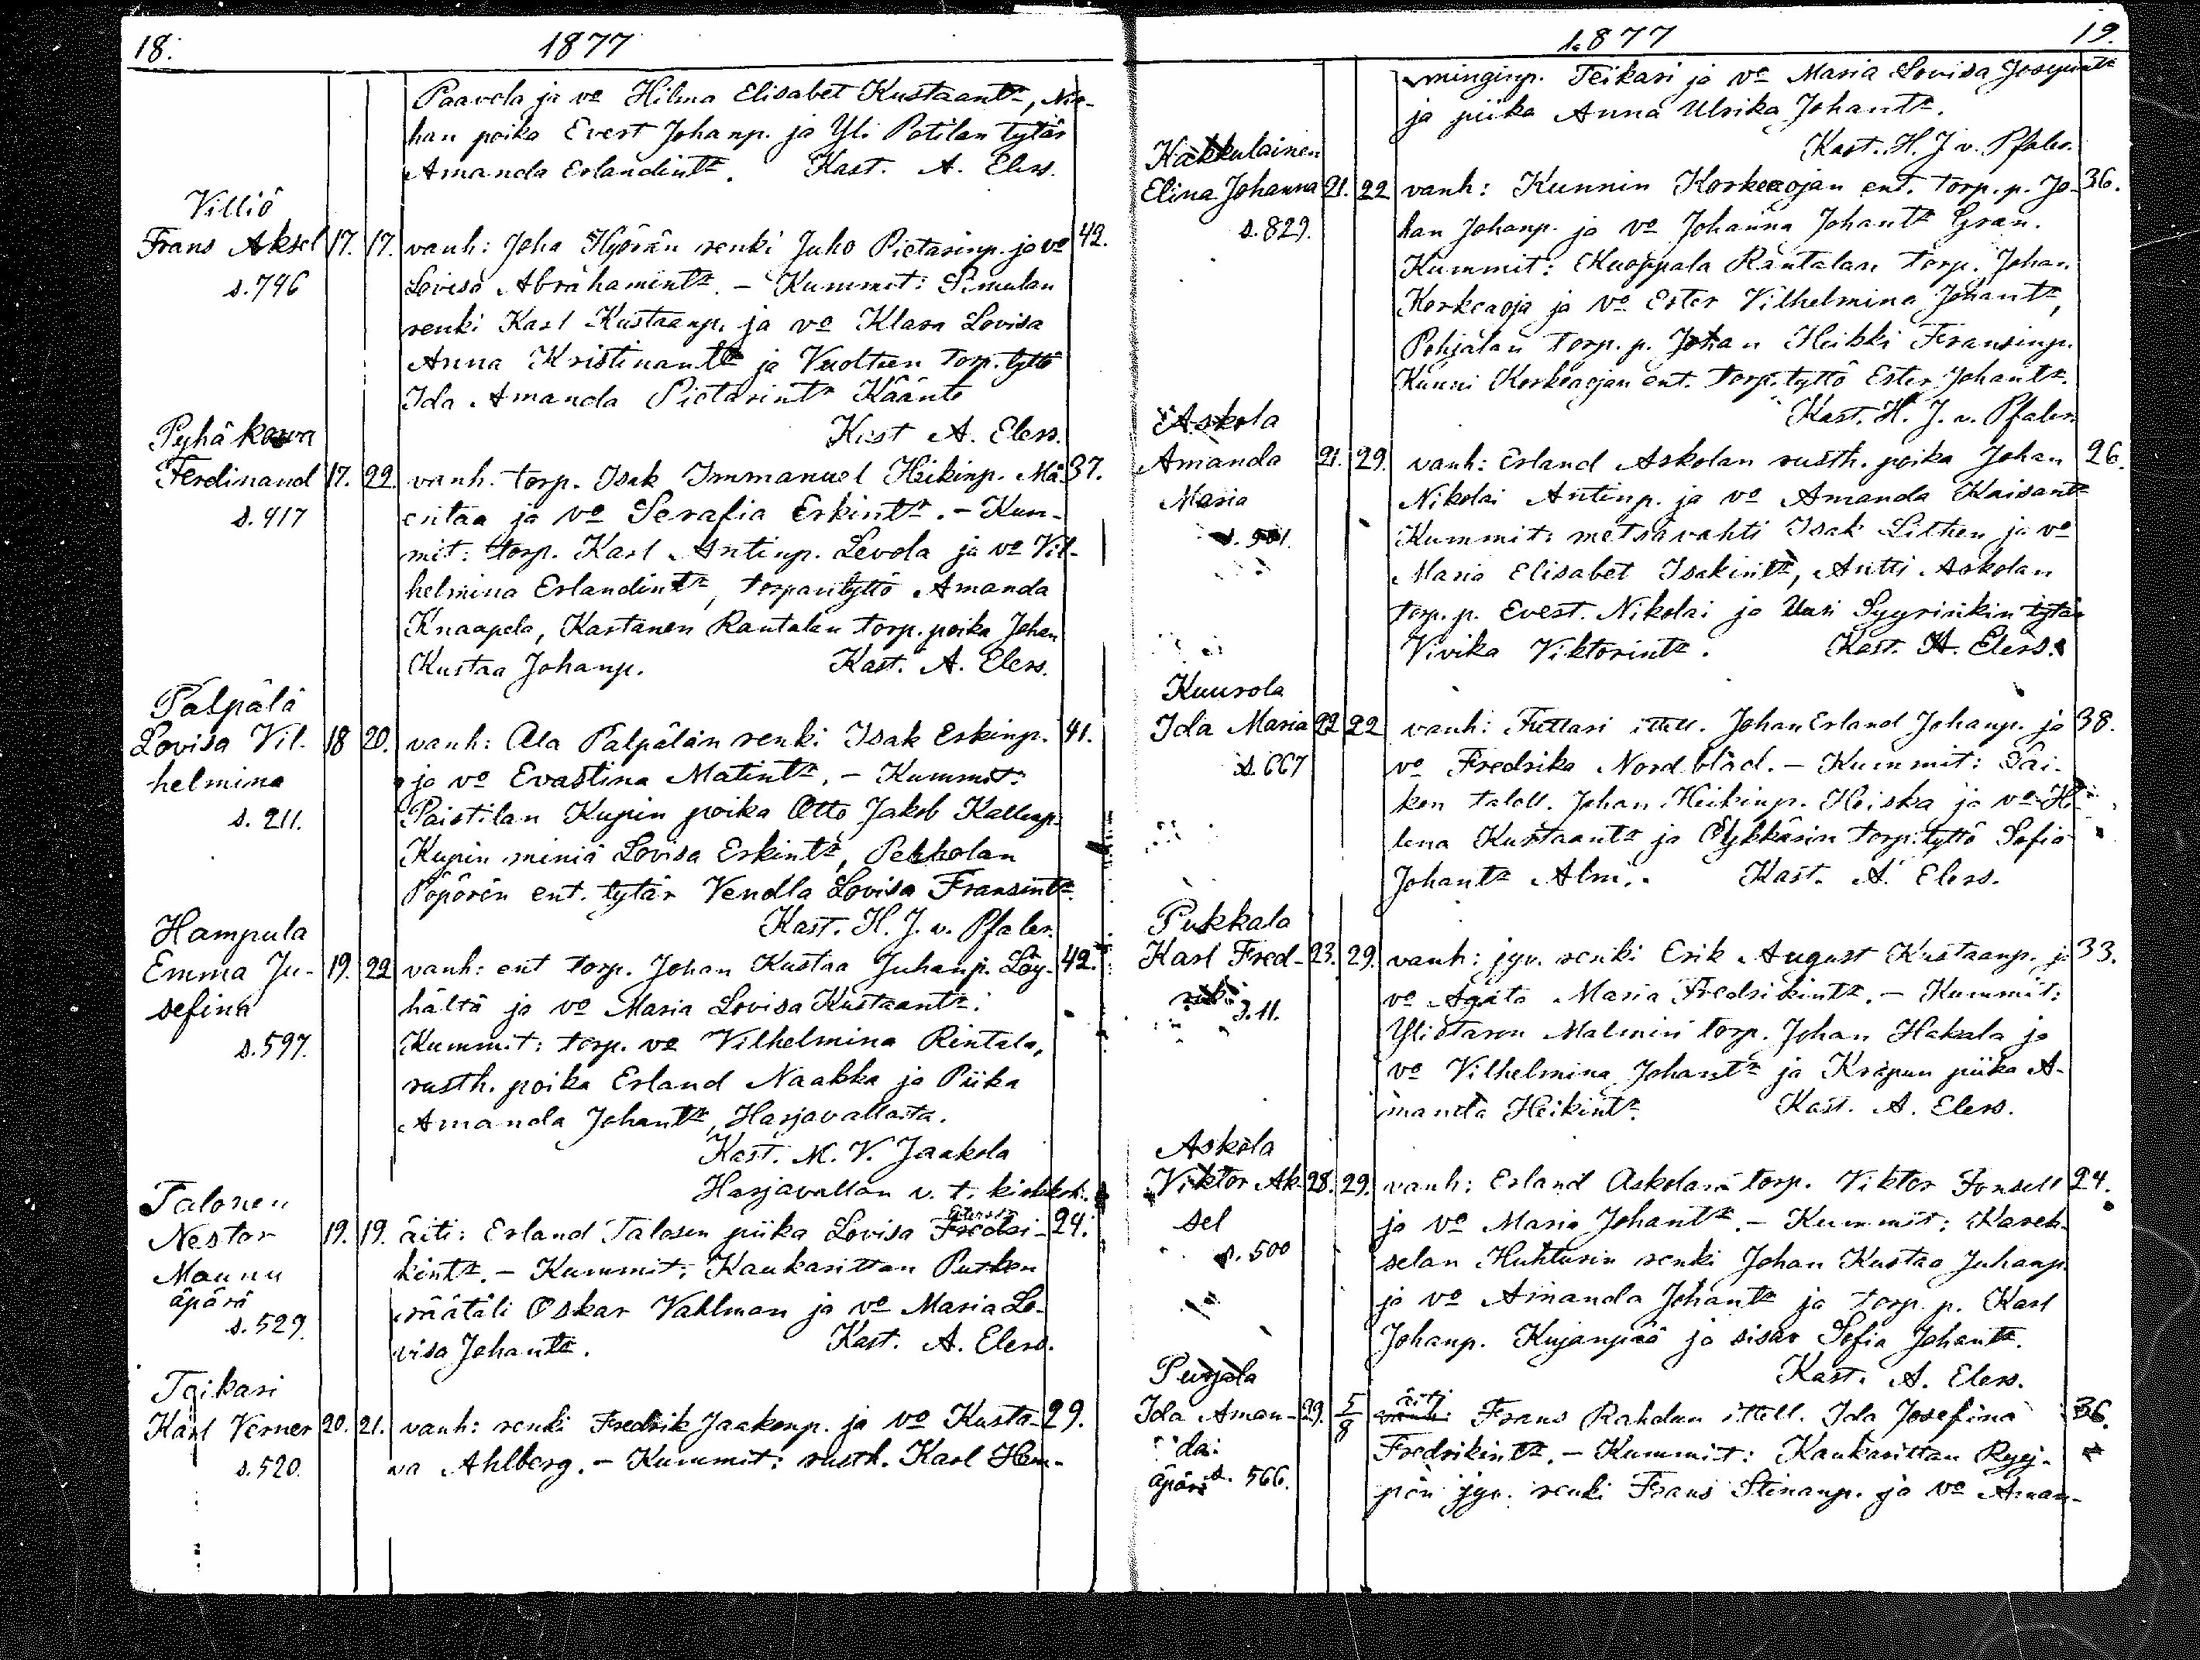 18. 1877
Paavola ja vo Hilma Elisabet Kustaantr, Nii-
han poika Evert Johanp. ja Yli Potilan tytär
Amanda Erlandintr. Kast. A. Elers.
Villiö
Frans Aksel 17. 17. vanh: Joha Hyörän renki Juho Pietarinp. ja vo 42.
s. 796 Lovisa Abrahamintr. - Kummit: Simulan
renki Karl Kustaanp. ja vo Klara Lovisa
Anna Kristinantr ja Vuolteen torp. tyttö
Ida Amanda Pietarintr Käänte
Kast A. Elers.
Pyhäkorva
Ferdinand 17. 22. vanh. torp. Isak Immanuel Heikinp. Mä- 37.
s. 417 entaa ja vo Serafia Erkintr. - Kum-
mit: torp. Karl Antinp. Levola ja vo Vil-
helmina Erlandintr, torparityttö Amanda
Knaapela, Kastanen Rantalan torp. poika Johan
Kustaa Johanp. Kast. A. Elers.
Palpälä
Lovisa Vil- 18 20. vanh: Ala Palpälän renki Isak Erkinp. 41.
helmina ja vo Evastina Matintr. - Kummit:
s. 211. Paistilan Kupin poika Otto Jakob Kallenp.
Kupin miniä Lovisa Erkintr, Pekkolan
Pöpörön ent. tytär Vendla Lovisa Fransintr.
Kast. H. J. v. Pfaler.
Hampula
Emma Jo- 19. 22 vanh: ent torp. Johan Kustaa Juhanp. Löy- 42.
sefina hältä ja vo Maria Lovisa Kustaantr.
s. 597. Kummit: torp. vo Vilhelmina Rintala,
rusth. poika Erland Naakka ja Piika
Amanda Johantr, Harjavallasta.
Kast. M. V. Jaakola
Harjavallan v. t. kirkkoh.
Talonen
Nestor 19. 19. äiti: Erland Talosen piika Lovisa Fredri- 24.
Maunu kintr. - Kummit: Kaukarittan Putken
äpärä räätäli Oskar Vahlman ja vo Maria Lo-
s. 529. visa Johantr. Kast. A. Elers.
Teikari
Karl Verner 20. 21. vanh: renki Fredrik Jaakonp. ja vo Kusta- 29.
s. 520. va Ahlberg. - Kummit: rusth. Karl Hem-
1877 19.
minginp. Teikari ja vo Maria Lovisa Josepintr
ja piika Anna Ulrika Johantr.
Kast. H. J v. Pfaler.
Kakkulainen
Elina Johanna 21. 22 vanh: Kunnin Korkeaojan ent. torp. p. Jo- 36.
s. 829. han Johanp. ja vo Johanna Johantr Gran.
Kummit: Kuoppala Rantalan torp. Johan
Korkeaoja ja vo Ester Vilhelmina Johantr,
Pohjalan torp. p. Johan Heikki Fransinp.
Kunni Korkeaojan ent. torp. tyttö Ester Johantr.
Kast. H. J. v. Pfaler.
Askola
Amanda 21. 29. vanh: Erland Askolan rusth. poika Johan 26.
Maria Nikolai Antinp. ja vo Amanda Kaisantr
s. 501. Kummit: metsävahti Isak Lithen ja vo
Maria Elisabet Isakintr, Antti Askolan
torp. p. Evert Nikolai ja Uusi Syyrinkin tytär
Vivika Viktorintr. Kast. A. Elers.
Kuurola
Ida Maria 22 22 vanh: Futtari ittell. Johan Erland Johanp. ja 38.
s. 667 vo Fredrika Nordblad. - Kummit: Säi-
ken taloll. Johan Heikinp. Heiska ja vo He-
lena Kustaantr ja Öykkärin torp. tyttö Sofia
Johantr Alm. Kast. A. Elers.
Pukkala
Karl Fred- 23. 29. vanh: jyv. renki Erik August Kustaanp. ja 33.
rik s. 11. vo Agata Maria Fredrikintr. - Kummit:
Ylistaron Malmin torp. Johan Hakala ja
vo Vilhelmina Johantr ja Krapun piika A-
manda Heikintr. Kast. A. Elers.
Askola
Viktor Ak- 28. 29. vanh: Erland Askolan torp. Viktor Fonsell 24.
sel ja vo Maria Johantr. - Kummit: Karek-
s. 500 selan Huhturin renki Johan Kustaa Juhanp.
ja vo Amanda Johantr ja torp. p. Karl
Johanp. Kujanpää ja sisar Sofia Johantr.
Kast. A. Elers.
Purjala äiti
Ida Aman- 29. 5/8 vanh: Frans Rahdun ittell. Ida Josefina 36.
da Fredrikintr. - Kummit: Kaukarittan
äpärä s. 566. jyv. renki Frans Stinanp. ja vo Aman-